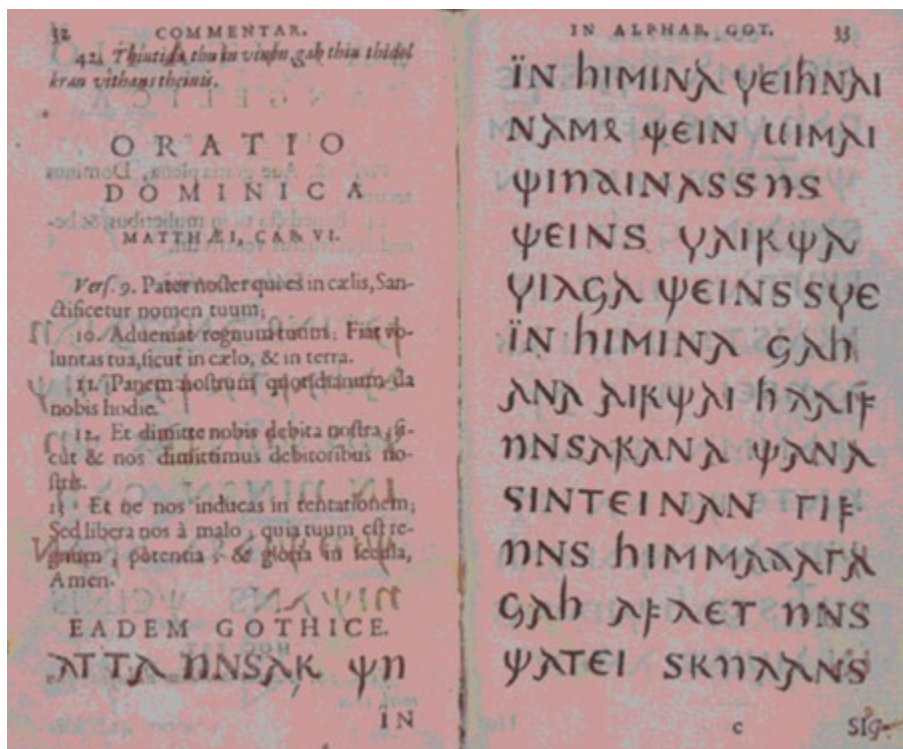 32 COMMENTAR.
kran vithans theinis.
ORATIO
DOMINICA
MATTHÆI, CAP. VI.
Vers. 9. Pater noster qui es in cælis, San-
ctificetur nomen tuum;
10. Adueniat regnum tuum: Fiat vo-
luntas tua, sicut in cælo, & in terra.
11. Panem nostrum quotidianum da
nobis hodie.
12. Et dimitte nobis debita nostra, si-
cut & nos dimittimus debitoribus no-
stris.
13 Et ne nos inducas in tentationem;
Sed libera nos à malo; quia tuum est re-
gnum, potentia, & gloria in secula,
Amen.
EADEM GOTHICE.
𐌰𐍄𐍄𐌰 𐌿𐌽𐍃𐌰𐍂 𐌸𐌿
IN
IN ALPHAB. GOT. 33
𐌹̈𐌽 𐌷𐌹𐌼𐌹𐌽𐌰 𐍅𐌴𐌹𐌷𐌽𐌰𐌹
𐌽𐌰𐌼𐍉 𐌸𐌴𐌹𐌽 𐌵𐌹𐌼𐌰𐌹
𐌸𐌹𐌿𐌳𐌹𐌽𐌰𐍃𐍃𐌿𐍃
𐌸𐌴𐌹𐌽𐍃 𐍅𐌰𐌹𐍂𐌸𐌰
𐍅𐌹𐌻𐌾𐌰 𐌸𐌴𐌹𐌽𐍃 𐍃𐍅𐌴
𐌹̈𐌽 𐌷𐌹𐌼𐌹𐌽𐌰 𐌾𐌰𐌷
𐌰𐌽𐌰 𐌰𐌹𐍂𐌸𐌰𐌹 𐌷𐌻𐌰𐌹𐍆
𐌿𐌽𐍃𐌰𐍂𐌰𐌽𐌰 𐌸𐌰𐌽𐌰
𐍃𐌹𐌽𐍄𐌴𐌹𐌽𐌰𐌽 𐌲𐌹𐍆
𐌿𐌽𐍃 𐌷𐌹𐌼𐌼𐌰𐌳𐌰𐌲𐌰
𐌾𐌰𐌷 𐌰𐍆𐌻𐌴𐍄 𐌿𐌽𐍃
𐌸𐌰𐍄𐌴𐌹 𐍃𐌺𐌿𐌻𐌰𐌽𐍃
c SIG-